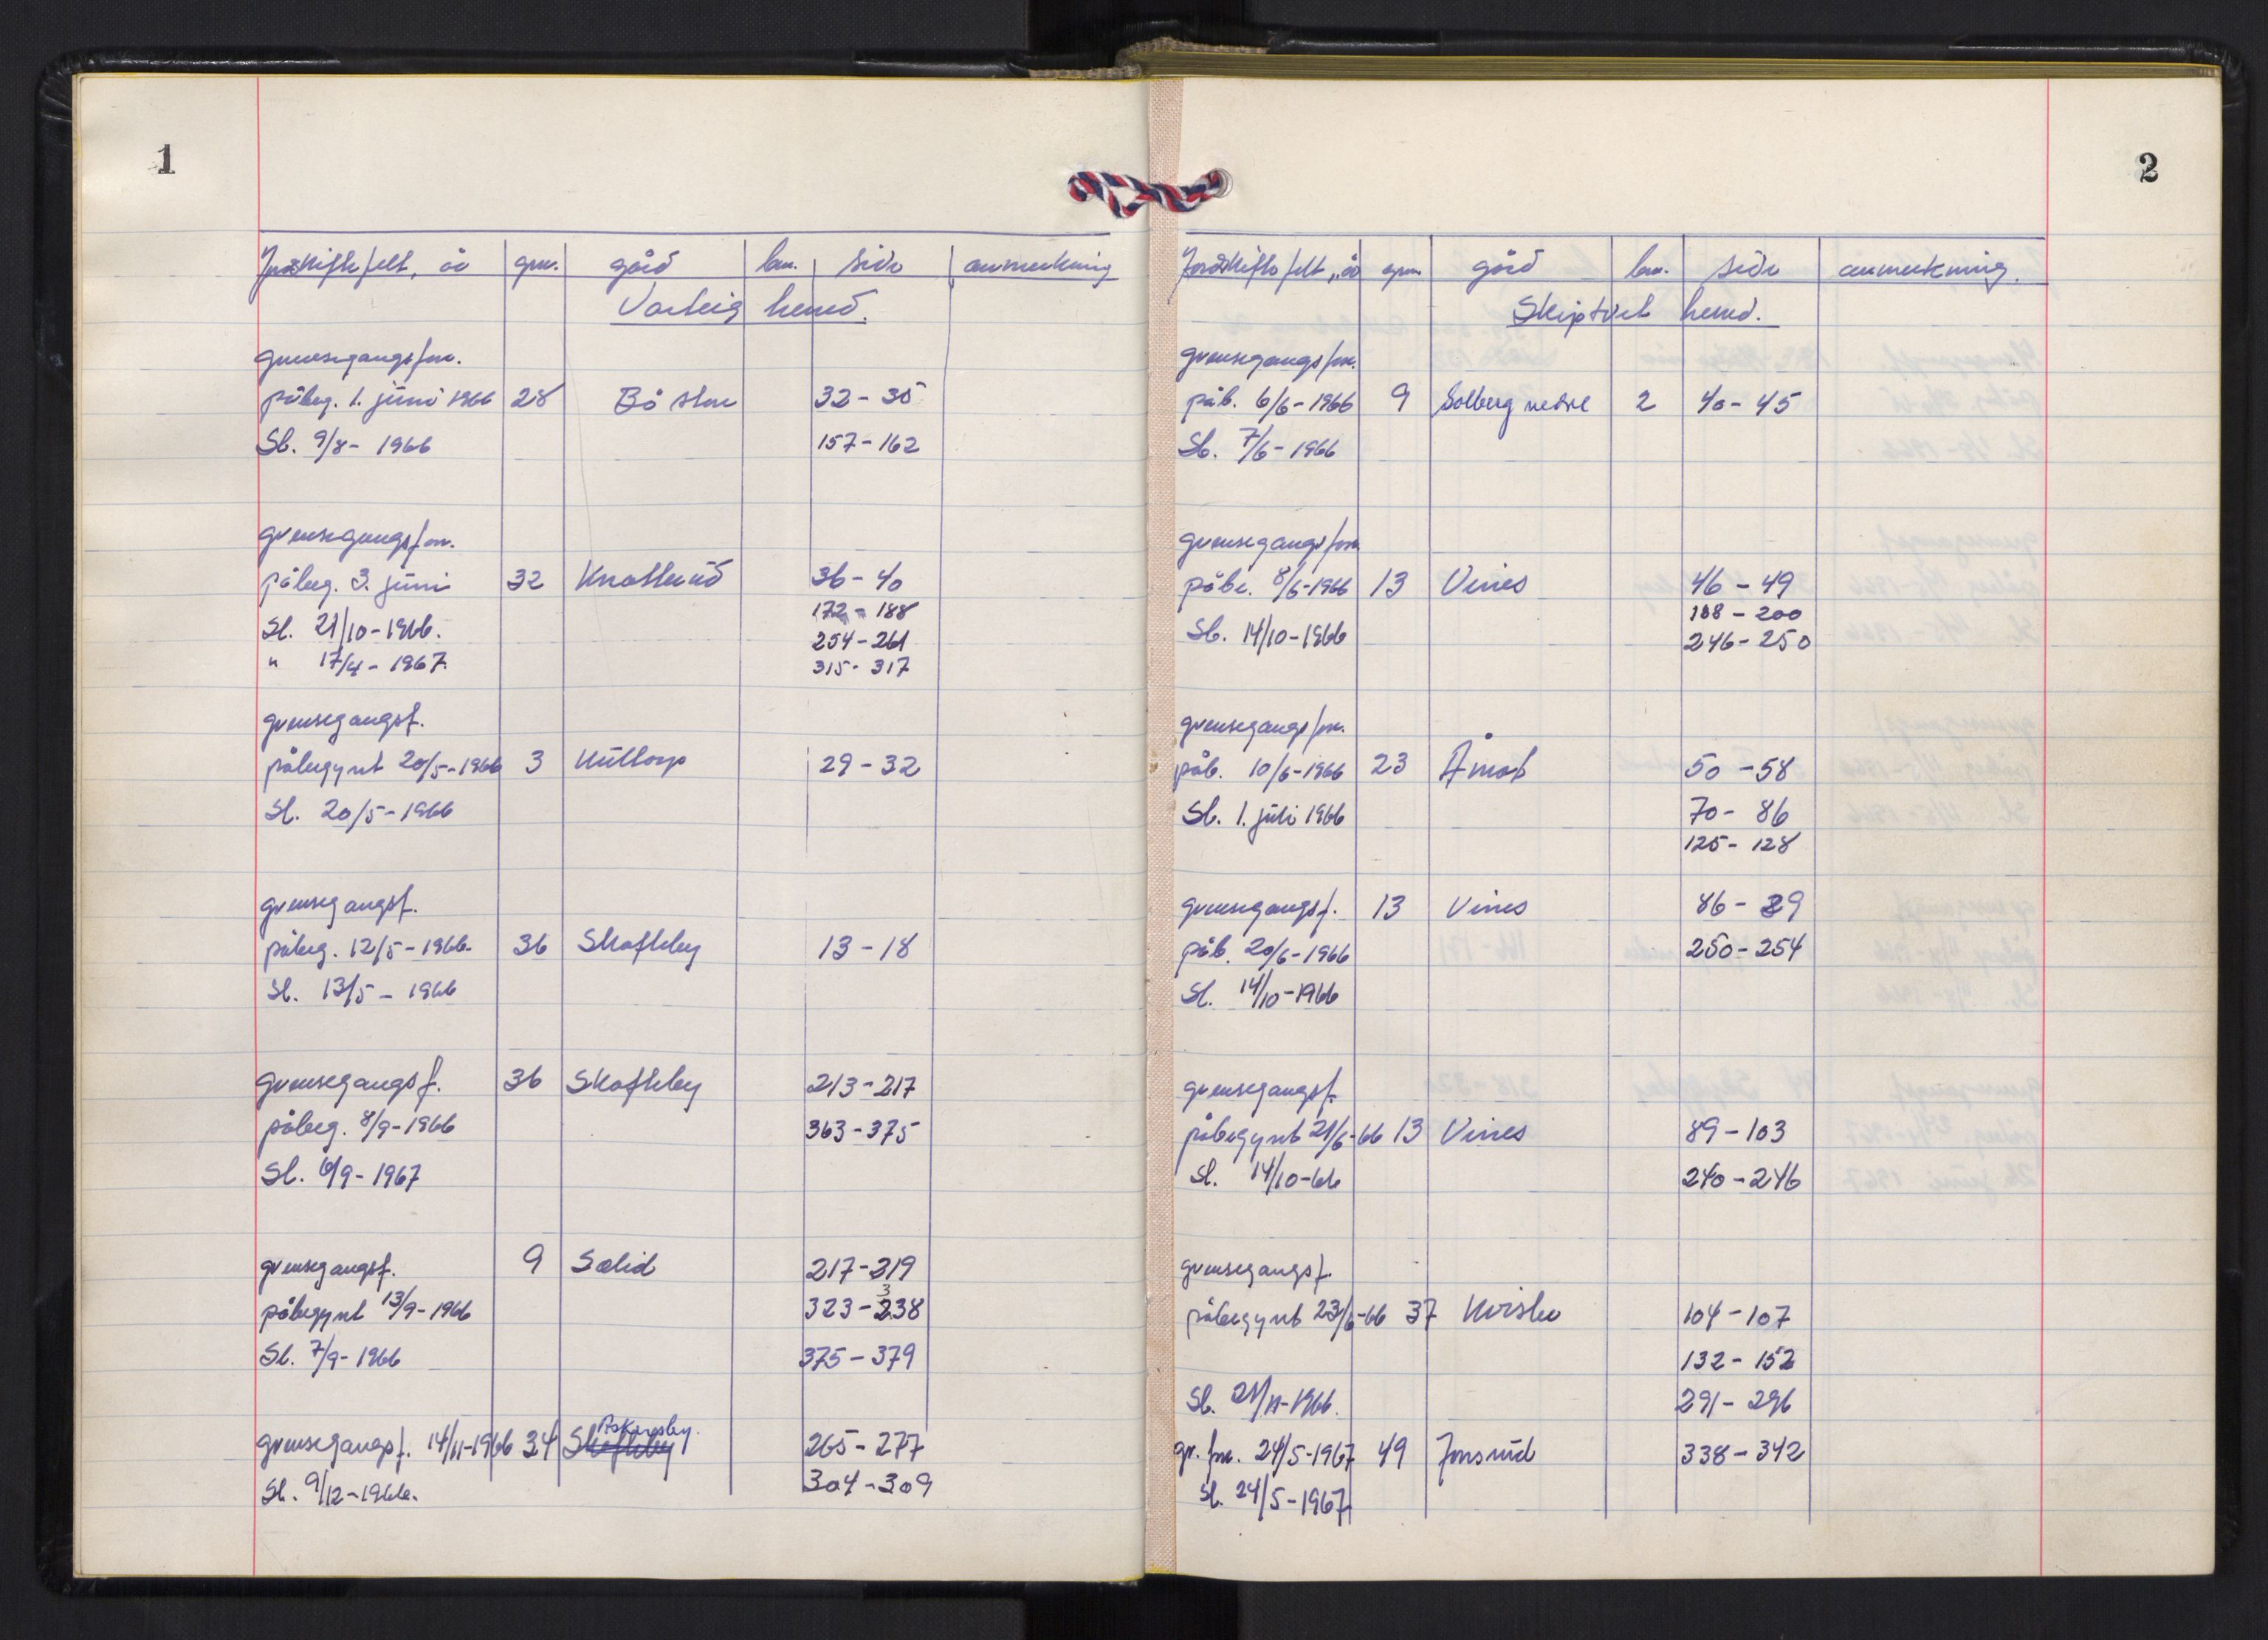 1
Jordskiftefelt, åo gnr. gård bnr. side anmerkning
Varteig herred.
grensegangsforr.
påbeg. 1. juni 1966 28 Bø store 32 - 35
Sl. 9/8 - 1966 157 - 162
grensegangsforr.
påbeg. 3. juni 32 Knatterud 36 - 40
172 - 188
Sl. 21/10 - 1966. 254 - 261
" 17/4 - 1967. 315 - 317
grensegangsf.
påbegynt 20/5 - 1966 3 Hultorp 29 - 32
Sl. 20/5 - 1966
grensegangsf.
påbeg. 12/5 - 1966. 36 Skofteby 13 - 18
Sl. 13/5 - 1966
grensegangsf. 36 Skofteby 213 - 217
påbeg. 8/9 - 1966 363 - 375
Sl. 6/9 - 1967
grensegangsf. 9 Sælid 217 - 219
påbegynt 13/9 - 1966 323 - 338
Sl. 7/9 - 1966 375 - 379
grensegangsf. 14/11 - 1966 34 Skofteby Askersby. 265 - 277
Sl. 9/12 - 1966. 304 - 309
2
Jordskiftefelt, åo gnr. gård bnr. side anmerkning.
Skiptvet herred.
grensegangsforr.
påb. 6/6 - 1966 9 Solberg nedre 2 40 - 45
Sl. 7/6 - 1966
grensegangsforr
påbe. 8/6 - 1966 13 Vines 46 - 49
188 - 200
Sl. 14/10 - 1966 246 - 250
grensegangsforr.
påb. 10/6 - 1966 23 Åmot 50 - 58
Sl. 1. juli 1966 70 - 86
125 - 128
grensegangsf. 13 Vines 86 - 89
påb. 20/6 - 1966 250 - 254
Sl. 14/10 - 1966
grensegangsf.
påbegynt 21/6 - 66 13 Vines 89 - 103
Sl. 14/10 - 66 240 - 246
grensegangsf.
påbegynt 23/6 - 66 37 Kvisler 104 - 107
132 - 152
Sl. 21/11 - 1966. 291 - 296
gr. forr. 24/5 - 1967 49 Jonsrud 338 - 342
Sl. 24/5 - 1967